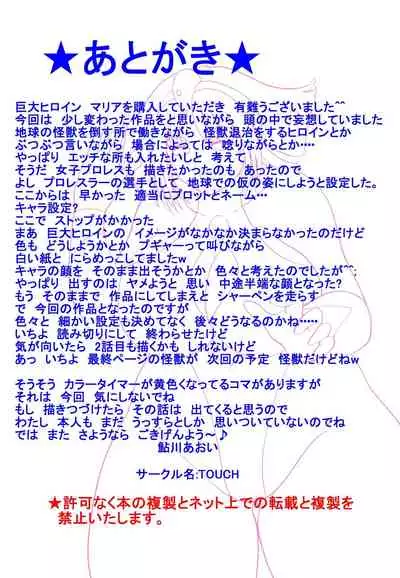 ★あとがき★
巨大ヒロイン マリアを購入していただき 有難うございました^^
今回は 少し変わった作品をと思いながら 頭の中で妄想していました
地球の怪獣を倒す所で働きながら 怪獣退治をするヒロインとか
ぶつぶつ言いながら 場合によっては 唸りながらとか・・・・
やっぱり エッチな所も入れたいしと 考えて
そうだ 女子プロレスも 描きたかったのも あったので
よし プロレスラーの選手として 地球での仮の姿にしようと設定した。
ここからは 早かった 適当にプロットとネーム・・・
キャラ設定?
ここで ストップがかかった
まあ 巨大ヒロインの イメージがなかなか決まらなかったのだけど
色も どうしようかとか プギャーって叫びながら
白い紙と にらめっこしてましたw
キャラの顔を そのまま出そうかとか 色々と考えたのでしたが^^;
やっぱり 出すのは ヤメようと 思い 中途半端な顔となった?
もう そのままで 作品にしてしまえと シャーペンを走らす
で 今回の作品となったのですが
色々と 細かい設定も決めてなく 後々どうなるのかね・・・・・
いちよ 読み切りにして 終わらせたけど
気が向いたら 2話目も描くかも しれないけど
あっ いちよ 最終ページの怪獣が 次回の予定 怪獣だけどねw
そうそう カラータイマーが黄色くなってるコマがありますが
それは 今回 気にしないでね
もし 描きつづけたら その話は 出てくると思うので
わたし 本人も まだ うっすらとしか 思いついていないのでね
では また さようなら ごきげんよう～♪
鮎川あおい
サークル名:TOUCH
★許可なく本の複製とネット上での転載と複製を
禁止いたします。